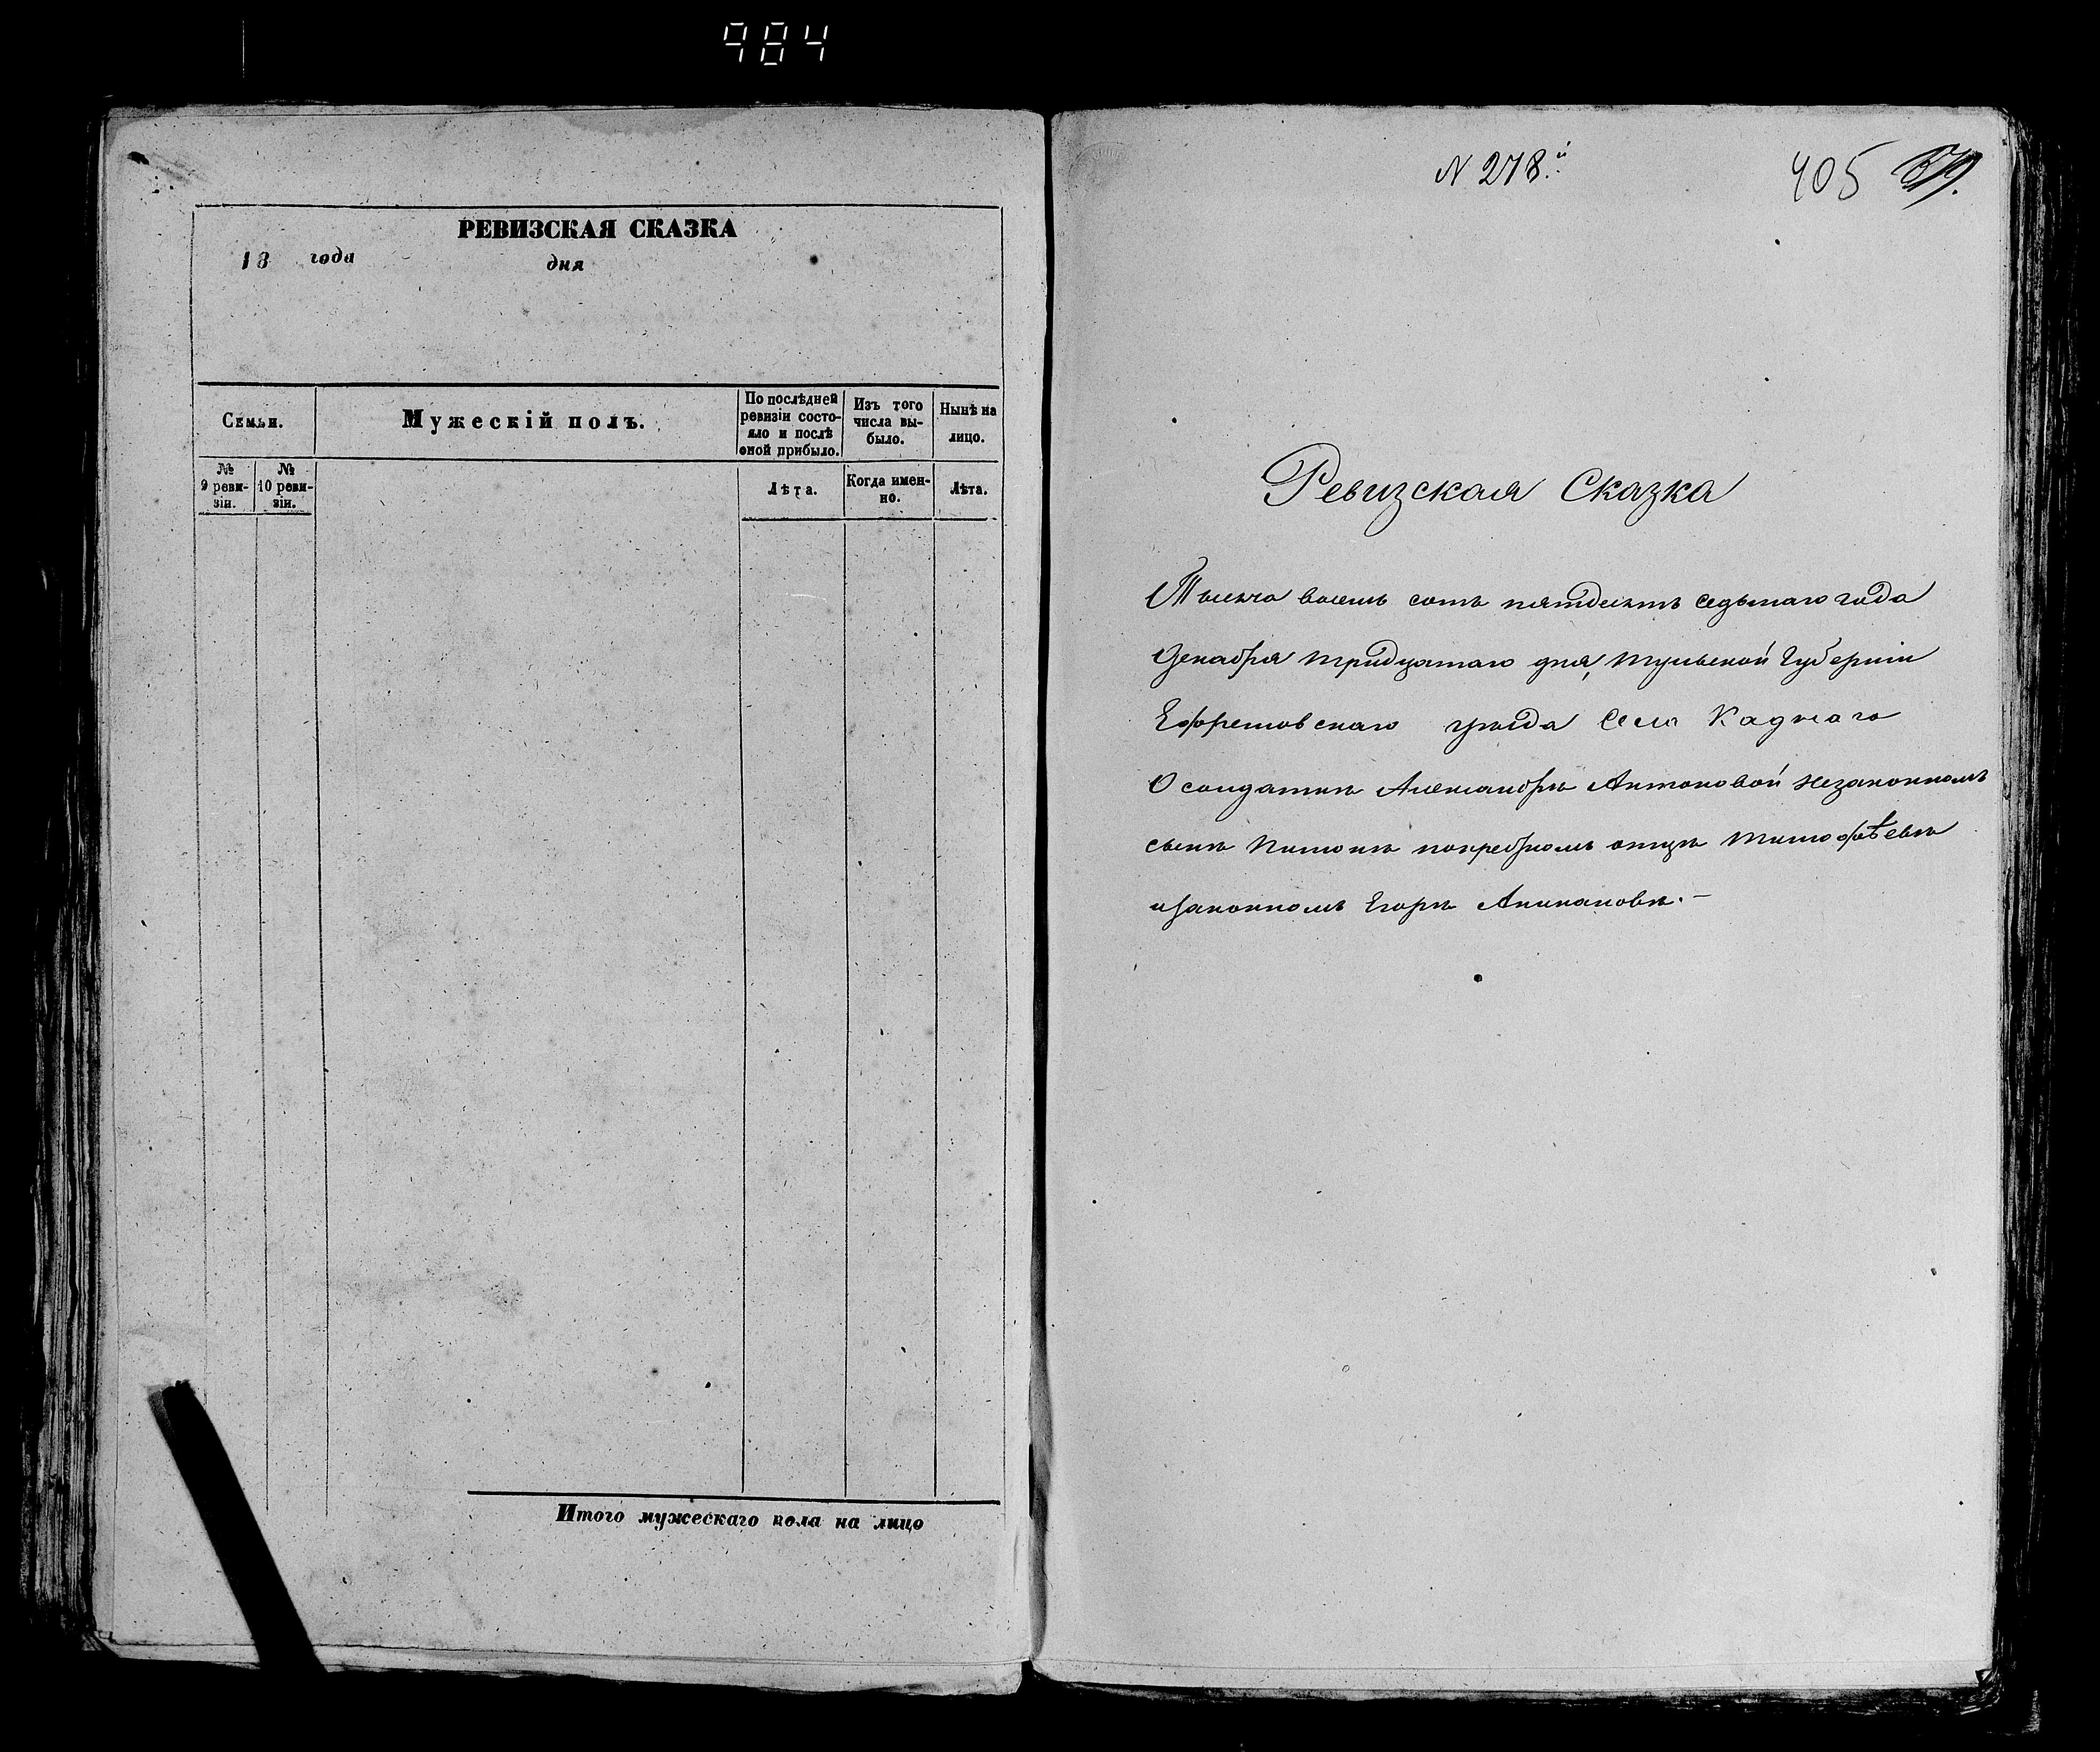 984
РЕВИЗСКАЯ СКАЗКА
18 года дня
Семьи.
Мужескій полъ.
По послѣдней ревизіи состо-
яло и послѣ
оной прибыло.
Изъ того
числа вы-
было.
Нынѣ на
лицо.
№
9 реви-
зіи.
№
10 реви-
зіи.
Лѣта.
Когда имен-
но.
Лѣта.
Итого мужескаго пола на лицо
N 278.й
405
Ревизская Сказка
Тысяча восемь сотъ пятдесятъ седьмаго года
Декабря тридцатаго дня, Тульской Губерніи
Ефремовскаго уѣзда Села Каднаго
О солдаткѣ Александрѣ Антоновой незаконномъ
сынѣ покребномъ отцѣ Тимофѣевѣ
изаконномъ Егорѣ